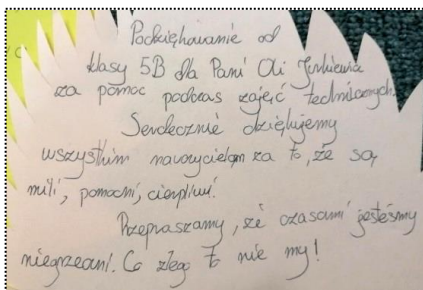 Podziękowanie od
klasy 5B dla Pani Oli Jenkiewicz
za pomoc podczas zajęć technicznych.
Serdecznie dziękujemy
wszystkim nauczycielom za to, że są
mili, pomocni, cierpliwi.
Przepraszamy, że czasami jesteśmy
niegrzeczni. Co złego to nie my!